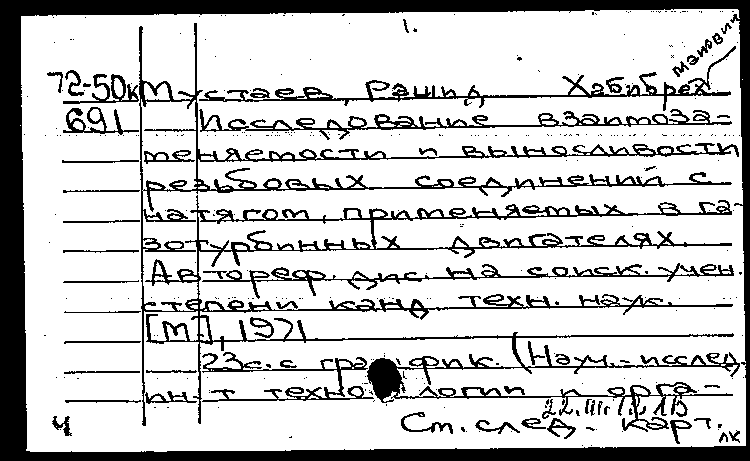 1.
72-50к Мустаев, Рашид Хабибрахманович
691 Исследование взаимоза=
меняемости и выносливости
резьбовых соединений с
натягом, применяемых в га-
зотурбинных двигателях.
Автореф. дис. на соиск. учен.
степени канд. техн. наук.
[М.], 1971.
23с. с график. (Науч.-исслед.
ин-т технологии и орга-
22.III.72 1В
ч См. след. карт.
лк